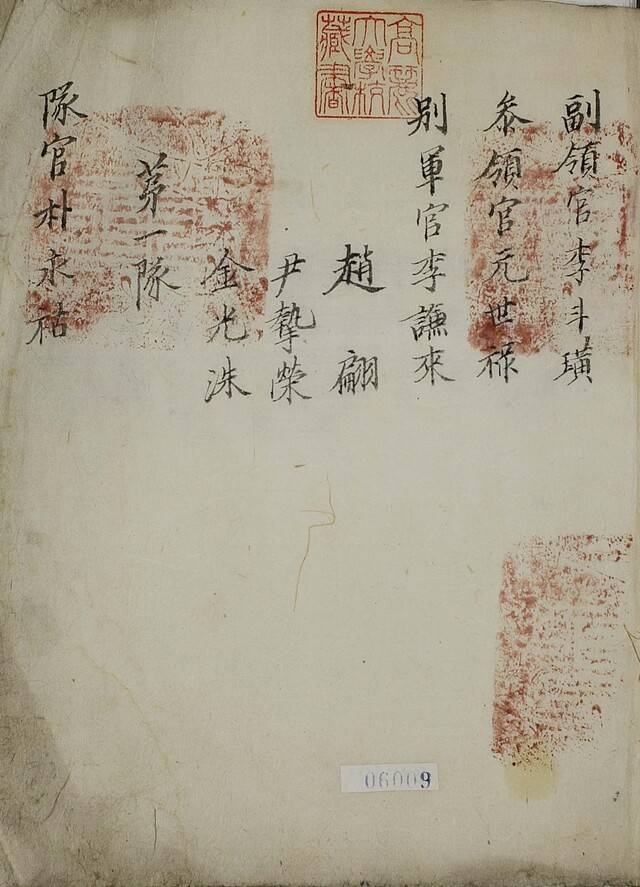 高麗大學校藏書
副領官李斗璜
叅領官元世祿
別軍官李謙來
趙翩
尹摯榮
金光洙
苐一隊
隊官朴永祜
06009